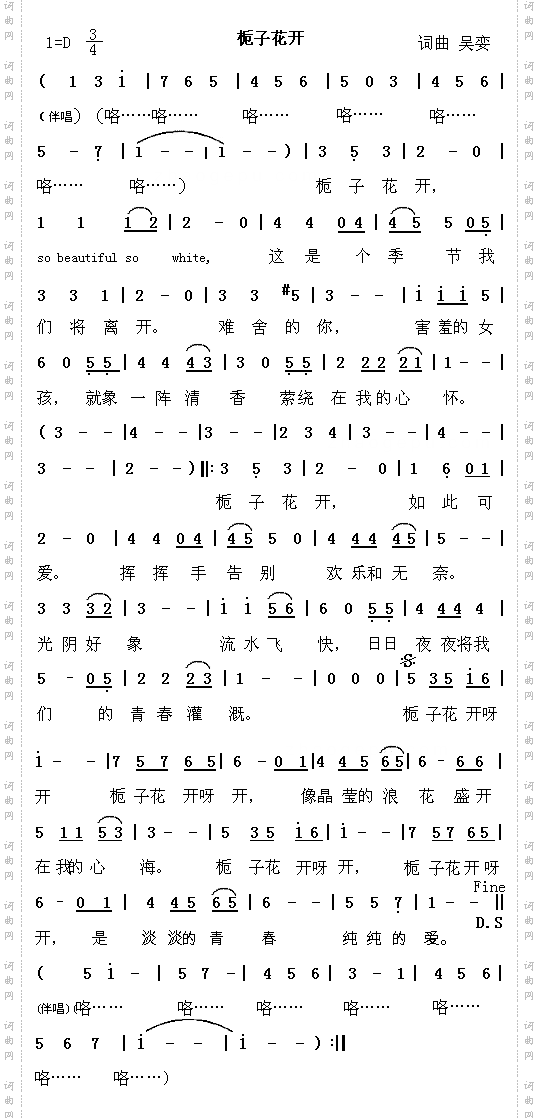 栀子花开
1=D 3/4 词曲 吴娈
( 1 3 i | 7 6 5 | 4 5 6 | 5 0 3 | 4 5 6 |
(伴唱) (咯……咯…… 咯…… 咯…… 咯……
5 - 7 | 1 - - | 1 - - ) | 3 5 3 | 2 - 0 |
咯…… 咯……) 栀 子 花 开,
1 1 1 2 | 2 - 0 | 4 4 0 4 | 4 5 5 0 5 |
so beautiful so white, 这 是 个 季 节 我
3 3 1 | 2 - 0 | 3 3 #5 | 3 - - | i i i 5 |
们 将 离 开。 难 舍 的 你, 害 羞的 女
6 0 5 5 | 4 4 4 3 | 3 0 5 5 | 2 2 2 2 1 | 1 - - |
孩, 就象 一 阵 清 香 萦绕 在 我 的 心 怀。
( 3 - - | 4 - - | 3 - - | 2 3 4 | 3 - - | 4 - - |
3 - - | 2 - - ) ‖: 3 5 3 | 2 - 0 | 1 6 0 1 |
栀 子 花 开, 如 此 可
2 - 0 | 4 4 0 4 | 4 5 5 0 | 4 4 4 4 5 | 5 - - |
爱。 挥 挥 手 告 别 欢 乐和 无 奈。
3 3 3 2 | 3 - - | i i 5 6 | 6 0 5 5 | 4 4 4 4 |
光 阴 好 象 流 水 飞 快, 日日 夜 夜将我
5 - 0 5 | 2 2 2 3 | 1 - - | 0 0 0 | 5 3 5 i 6 |
们 的 青 春 灌 溉。 栀 子花 开呀
i - - | 7 5 7 6 5 | 6 - 0 1 | 4 4 5 6 5 | 6 - 6 6 |
开 栀 子花 开呀 开, 像晶 莹的 浪 花 盛 开
5 1 1 5 3 | 3 - - | 5 3 5 i 6 | i - - | 7 5 7 6 5 |
在 我的 心 海。 栀 子花 开呀 开, 栀 子花 开 呀
Fine
6 - 0 1 | 4 4 5 6 5 | 6 - - | 5 5 7 | 1 - - ‖
D.S
开, 是 淡 淡的 青 春 纯 纯 的 爱。
( 5 i - | 5 7 - | 4 5 6 | 3 - 1 | 4 5 6 |
(伴唱) (咯…… 咯…… 咯…… 咯…… 咯……
5 6 7 | i - - | i - - ) :‖
咯…… 咯……)
词曲网